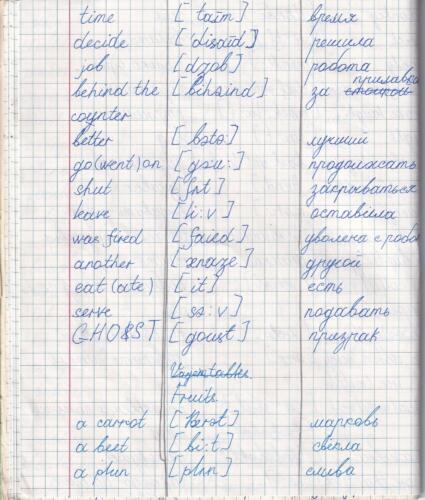 time [taim] время
decide [disaid] решила
job [dzob] робота
behind the [bihaind] за прилавко
counter
better [bətə] лучший
go(went) on [gəu:] продолжсать
shut [ʃʌt] закрываться
leave [li:v] оставила
was fired [faied] уволена с робо
another [ənaze] другой
eat (ate) [it] есть
serve [sə:v] подавать
GHOST [goust] призрак
Vegetables
Fruits
a carrot морковь
a beet [bi:t] свёкла
a plun [plʌn] слива